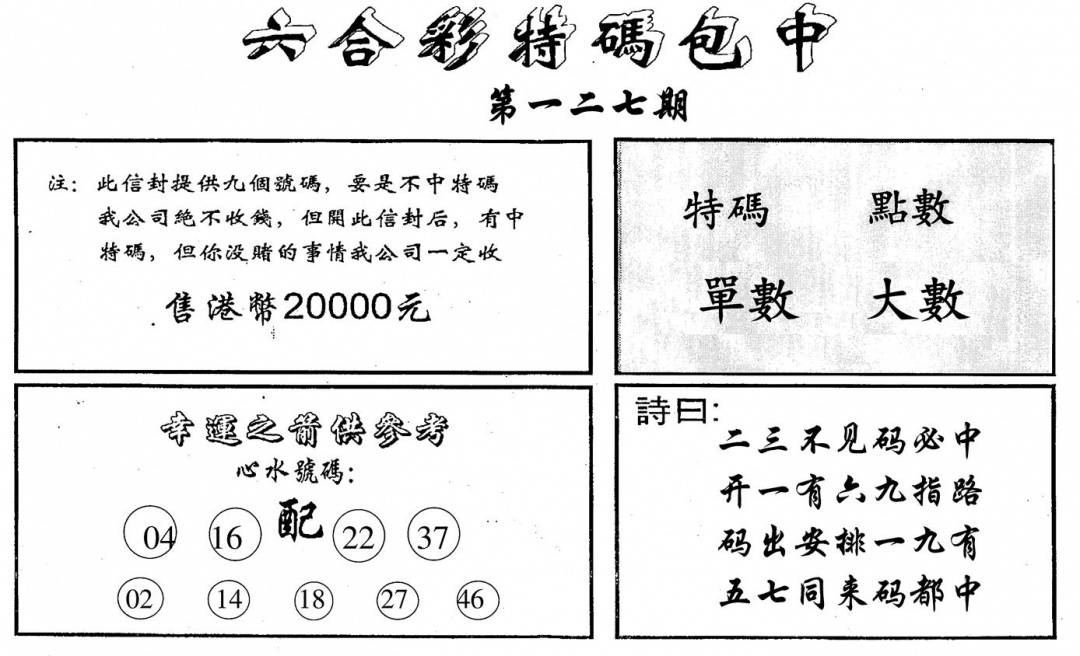 六合彩特碼包中
第一二七期
注：此信封提供九個號碼，要是不中特碼
我公司絶不收錢，但開此信封后，有中
特碼，但你没賭的事情我公司一定收
售港幣20000元
特碼 點數
單數 大數
幸運之箭供參考
心水號碼：
04 16 配 22 37
02 14 18 27 46
詩曰：
二三不见码必中
开一有六九指路
码出安排一九有
五七同来码都中